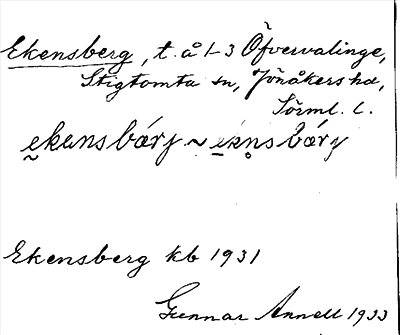 Ekensberg, t. å 1-3 Öfvervalinge,
Stigtomta sn, Jönåkers hd,
Sörml. l.
ekensbárj ~ ekn̥sbárj
Ekensberg kb 1931
Gunnar Annell 1933